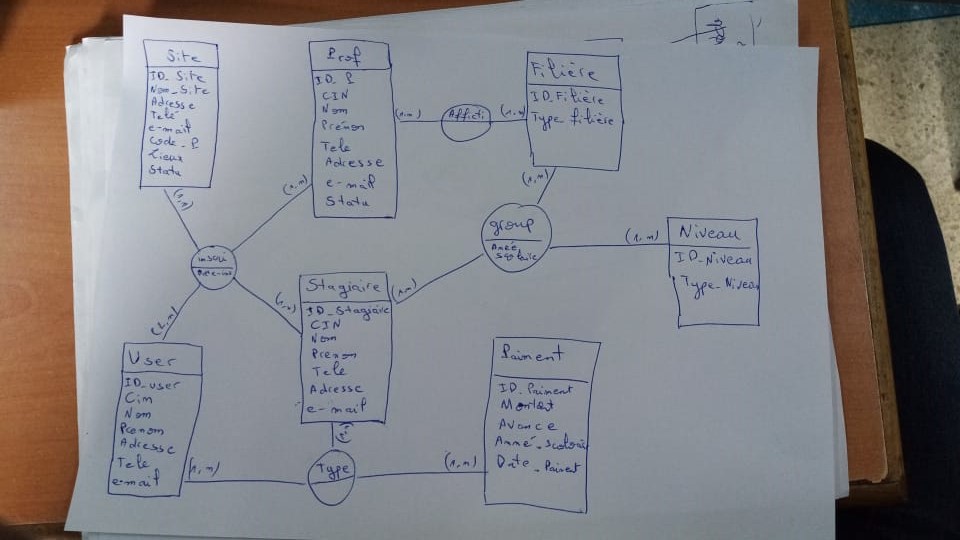 Site
ID_Site
Nom_Site
Adresse
Telé
e-mail
Code_P
Lieux
Statu
Prof
ID_P
CIN
Nom
Prénon
Tele
Adresse
e-mail
Statu
(1,n)
Afficti
(1,n)
Filière
ID_Filière
Type filière
(1,n)
(1,n)
(1,n)
group
Anné
scolaire
(1,n)
Niveau
ID_Niveau
Type_Niveau
inscri
(1,n)
(1,n)
Stagiaire
ID_Stagiaire
CIN
Nom
Prenom
Tele
Adresse
e-mail
User
ID_user
Cim
Nom
Prenom
Adressse
Tele
e-mail
(1,n)
Type
(1,n)
Paiment
ID_Paiment
Montant
Avance
Anné_scolaire
Date_Paiment